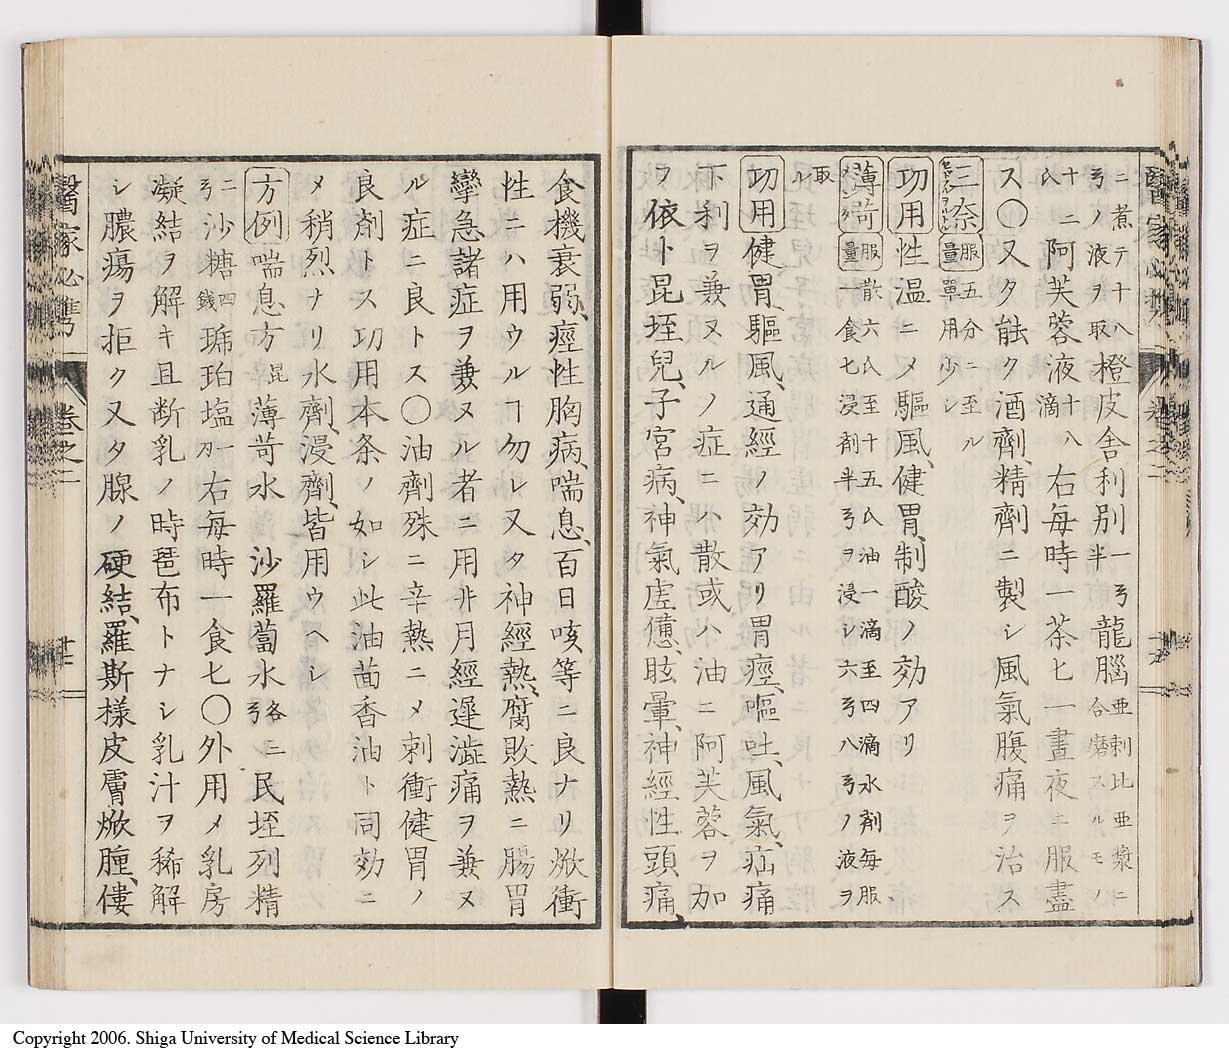 ニ煮テ十八
弓ノ液ヲ取橙皮舎利別一弓半龍腦亜剌比亜漿ニ合磨スルモノ
十二氏阿芙蓉液十八滴右毎時一茶匕一晝夜ニ服盡
ス〇又タ能ク酒劑、精劑ニ製シ風氣腹痛ヲ治ス
三奈服量五分ニ至ル單用少シ
功用性温ニメ驅風、健胃、制酸ノ効アリ
薄荷服量散六氏至十五氏油一滴至四滴水劑毎服一食匕浸劑半弓ヲ浸シ六弓八弓ノ液ヲ
取ル
功用健胃、驅風、通經ノ効アリ胃痙、嘔吐、風氣、疝痛
下利ヲ兼ヌルノ症ニハ散或ハ油ニ阿芙蓉ヲ加
ヲ依卜昆垤兒、子宮病、神氣虚憊、眩暈、神經性頭痛、
食機衰弱、痙性胸病、喘息、百日咳等ニ良ナリ焮衝
性ニハ用ウルヿ勿レ又タ神經熱、腐敗熱ニ腸胃
攣急諸症ヲ兼ヌル者ニ用ヰ月經遅澁痛ヲ兼ヌ
ル症ニ良トス〇油劑殊ニ辛熱ニメ刺衝健胃ノ
良劑トス功用本条ノ如シ此油茴香油ト同効ニ
メ稍烈ナリ水劑、浸劑、皆用ウヘシ
方例喘息方昆薄荷水沙羅蔔水各三弓民垤列精
二弓沙糖四錢琥珀塩一刄右毎時一食匕〇外用メ乳房
凝結ヲ解キ且断乳ノ時琶布トナシ乳汁ヲ稀解
シ膿瘍ヲ拒ク又タ腺ノ硬結、羅斯様皮膚焮腫、僂
醫家必携
卷之二
十二
Copyright 2006. Shiga University of Medical Science Library